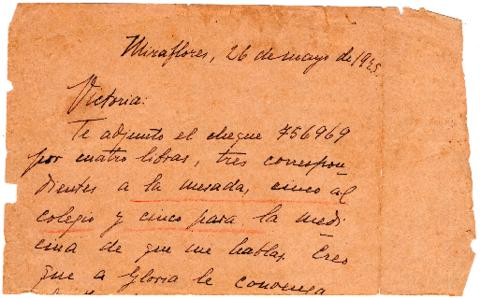 Miraflores, 26 de mayo de 1925.
Victoria:
Te adjunto el cheque 756969
por cuatro libras, tres correspon
dientes a la mesada, cinco al
colegio y cinco para la medi
cina de que me hablas. Creo
que a Gloria le convenga